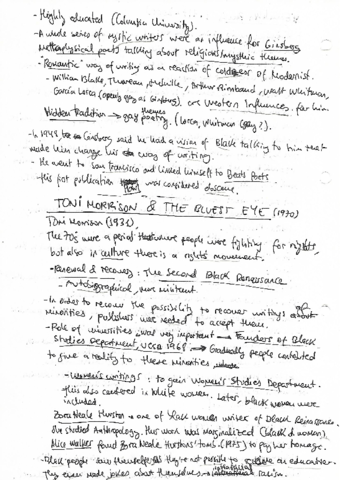 - Highly educated (Columbia University).
- A whole series of mystic writers were an influence for Ginsberg
Metaphysical poets talking about religious/mystic themes.
- "Romantic" way of writing as a reaction of coldness of Modernist.
- William Blake, Thoreau, Melville, Arthur Rimbaud, Walt Whitman,
García Lorca (openly gay as Ginsberg), Western Influences for him.
Hidden tradition → gay themes poetry. (Lorca, Whitman (gay?).
- In 1948 Ginsberg said he had a vision of Black talking to him that
made him change his way of writing.
- He went to San Francisco and linked himself to Beats Poets
- His first publication was considered obscene.
TONI MORRISON & THE BLUEST EYE (1970)
Toni Morrison (1931)
The 70's were a period where people were fighting for rights,
but also in culture there is a rights movement.
- Renewal & recovery: The Second Black Renaissance
Autobiographical, militant
- In order to recover the possibility to recover writings of
minorities, publishers was needed to accept them.
- Role of minorities was very important → Founders of Black
Studies Department, 1968 → Gradually people contributed
to give a reality to these minorities
- Women's writings: to gain Women's Studies Department.
This also centered in white women. Later, black women were
included.
Zora Neale Hurston → one of black women writer of Black Renaissance.
She studied Anthropology. This work was marginalized (black & woman).
Alice Walker found Zora Neale Hurston's tomb (1975) to pay her homage.
- Black people saw themselves as they're not possible to an education.
They even made jokes about themselves → racism.